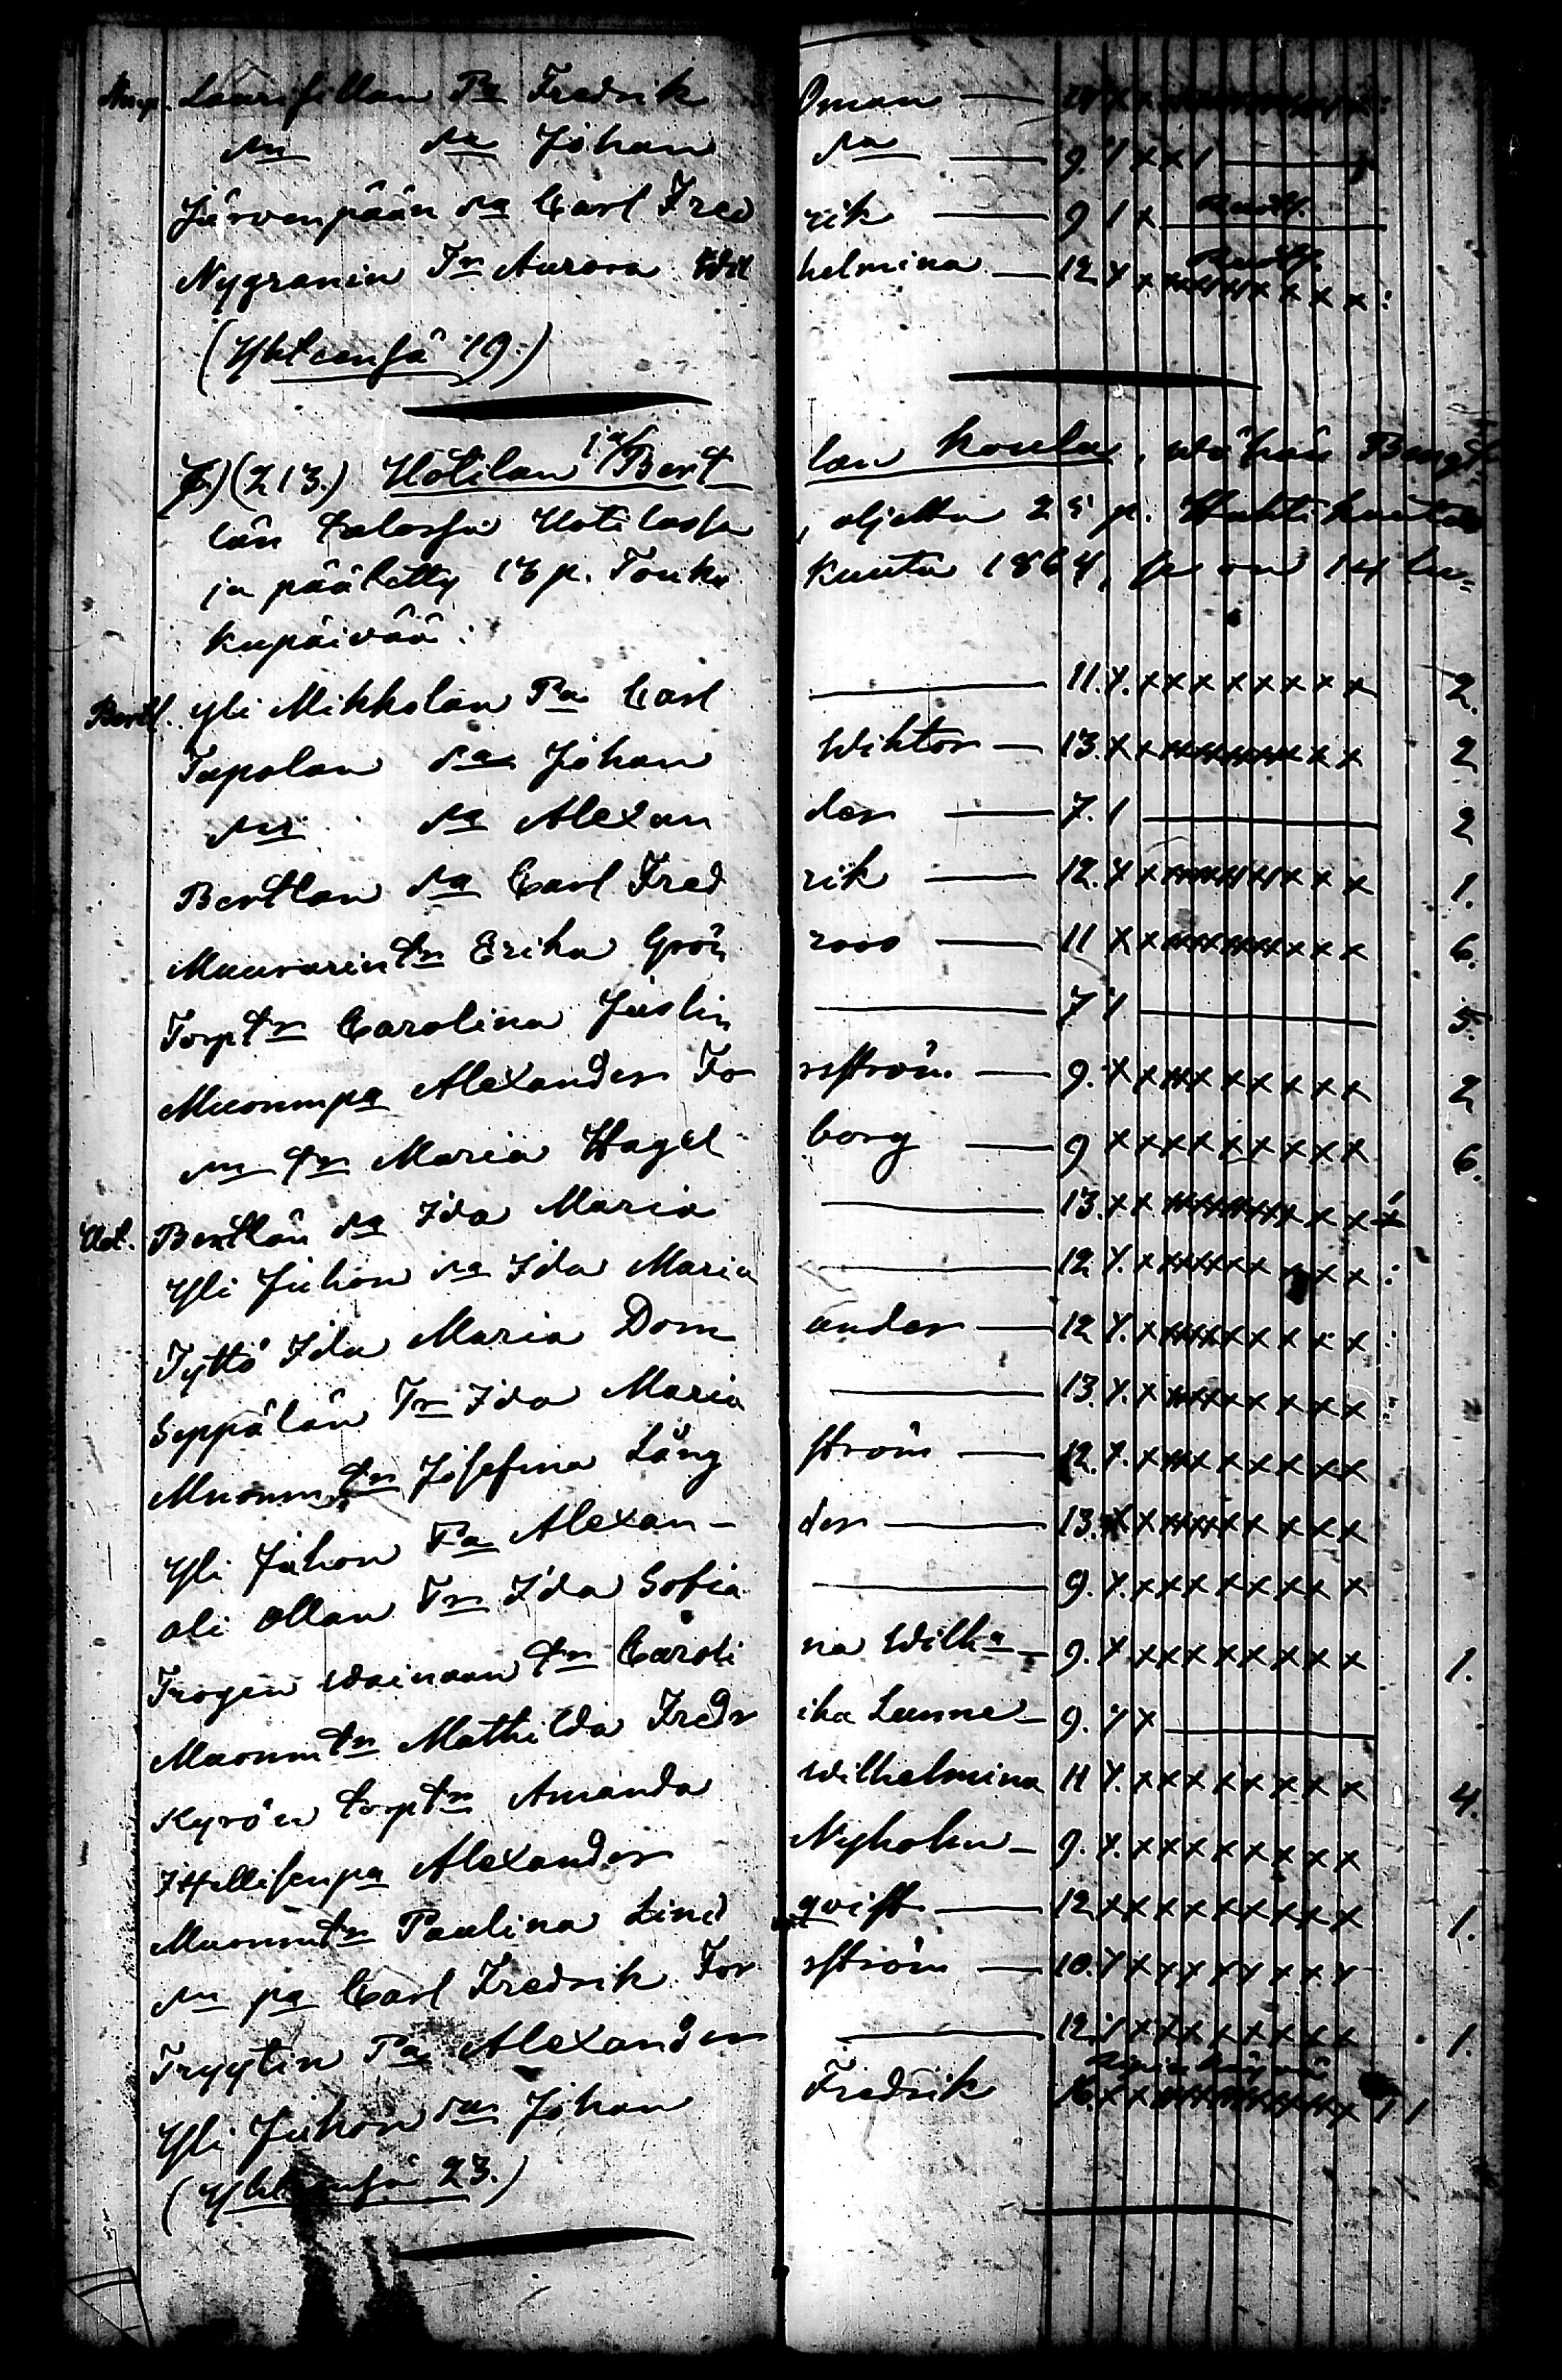 Laurikillan Pa Fredrik Öman — 14 x x x x x x x x x x :
dn da Johan da — 9. / x x / —
Järvenpään da Carl Fredrik — 9 / x —
Nygranin Tr Aurora Wilhelmina — 12 x x x x x x x x x x :
(Yhteensä 19.)
7.) (213.) Uotilan ja Bertlan koulu, wähän
län talossa Uotilassa, aljettu 25 p. Huhtikuuta
ja päätetty 13 p. Touko kuuta 1864, se on 14 lu=
kupäivää:
Bertl. Yli Mikkolan Pa Carl — 11. x. x x x x x x x x 2.
Tapolan da Johan Wiktor — 13. x x x x x x x x x 2
dn da Alexander — 7. / — 2
Bertlan da Carl Fredrik — 12. x x x x x x x x x 1.
Muurarin tr Erika Grönroos — 11 x x x x x x x x x 6.
Torp tr Carolina Juslin — 7 / — 5.
Muonmpa Alexander Forsström — 9. x x x x x x x x x 2
dn tr Maria Hagelborg — 9 x x x x x x x x x 6.
Uot. Bertlän da Ida Maria — 13. x x x x x x x x x x
Yli Juhon da Ida Maria — 12 x. x x x x x x x x :
Tyttö Ida Maria Domander — 12 x. x x x x x x x x :
Seppälän Tr Ida Maria — 13. x. x x x x x x x x :
Muonm tr Josefina Långström — 12. x. x x x x x x x x
Yli Juhon Pa Alexander — 13. x x x x x x x x x
Ali Ollan Tr Ida Sofia — 9. x. x x x x x x x x
Trogen wainaan tr Carolina Wilha — 9. x x x x x x x x x 1.
Muonm tr Mathilda Fredrika Lunne — 9. x x —
Kyrön torp tr Amanda Wilhelmina 11 x. x x x x x x x x 4.
Itsellisen pa Alexander Nyholm — 9. x. x x x x x x x x
Muonm tr Paulina Lindqvist — 12 x x x x x x x x x 1.
dn pa Carl Fredrik Forsström — 10. x x x x x x x x x
Tryytin Pa Alexander — 12 / x x x x x x x x 1.
Yli Juhon da Johan Fredrik 16. x x x x x x x x x / /
(Yhteensä 23.)